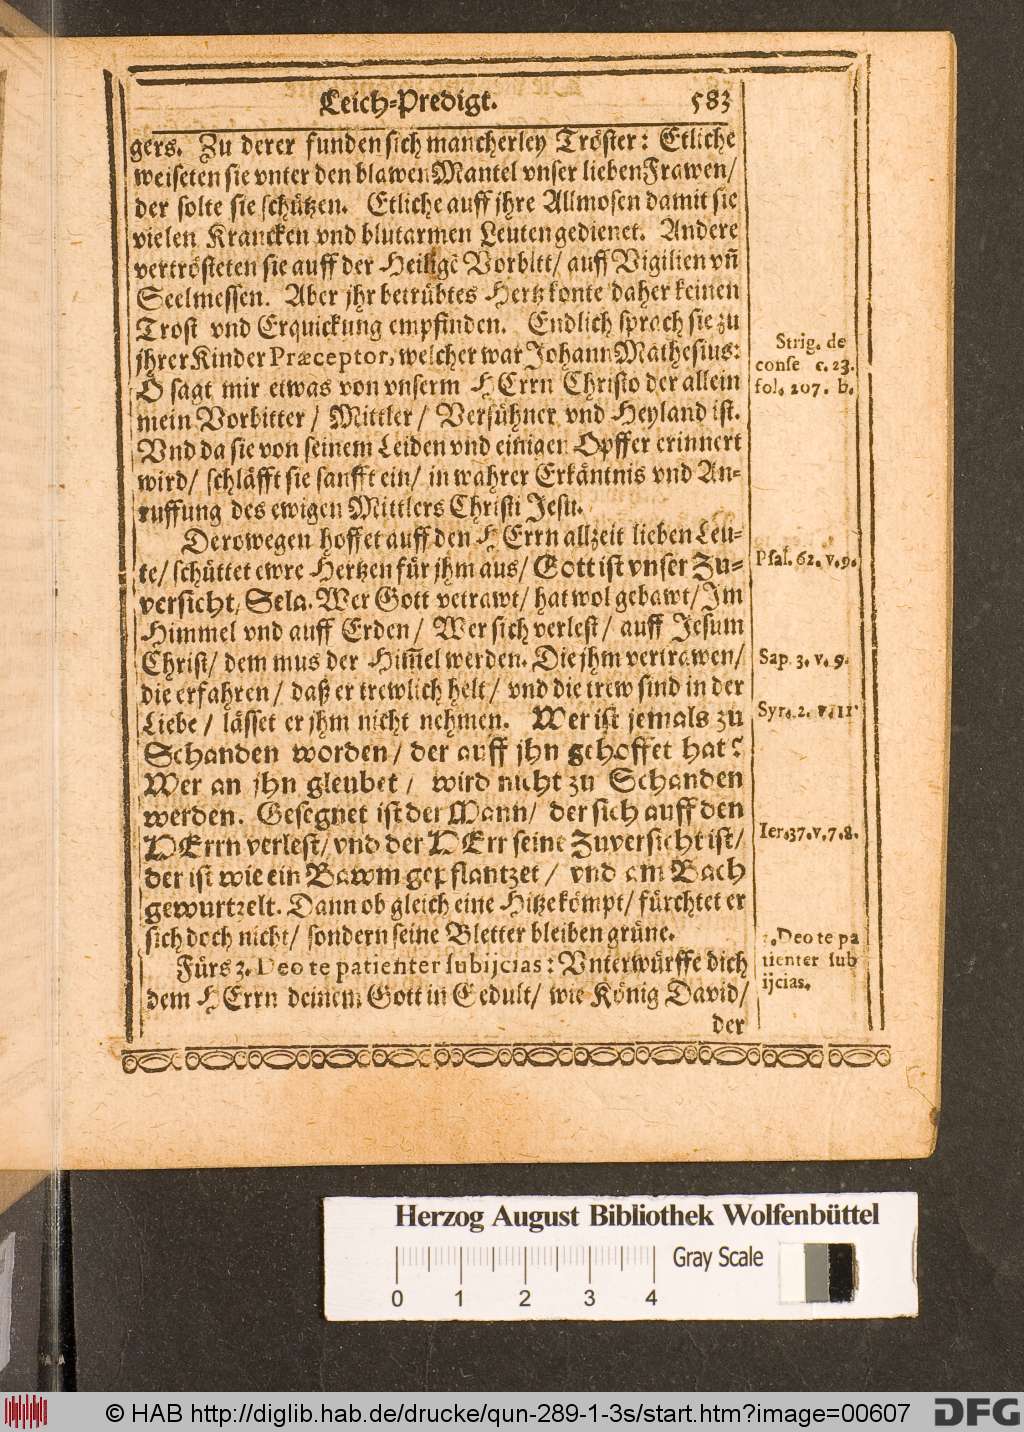 Leich-Predigt. 583
gers. Zu derer funden sich mancherley Tröster: Etliche
weiseten sie vnter den blawen Mantel vnser lieben Frawen/
der solte sie schützen. Etliche auff jhre Allmosen damit sie
vielen Krancken vnd blutarmen Leuten gedienet. Andere
vertrösteten sie auff der Heiligē Vorbitt/ auff Vigilien vñ
Seelmessen. Aber jhr betrübtes Hertz konte daher keinen
Trost vnd Erquickung empfinden. Endlich sprach sie zu
jhrer Kinder Præceptor, welcher war Johann Mathesius:
O sagt mir etwas von vnserm HErrn Christo der allein
mein Vorbitter / Mittler / Versühner vnd Heyland ist.
Vnd da sie von seinem Leiden vnd einigen Opffer erinnert
wird/ schläfft sie sanfft ein/ in wahrer Erkäntnis vnd An-
ruffung des ewigen Mittlers Christi Jesu.
Derowegen hoffet auff den HErrn allzeit lieben Leu-
te/ schüttet ewre Hertzen für jhm aus/ Gott ist vnser Zu-
versicht, Sela. Wer Gott vetrawt/ hat wol gebawt/ Im
Himmel vnd auff Erden / Wer sich verlest/ auff Jesum
Christ/ dem mus der Him̃el werden. Die jhm vertrawen/
die erfahren / daß er trewlich helt / vnd die trew sind in der
Liebe / lässet er jhm nicht nehmen. Wer ist jemals zu
Schanden worden / der auff jhn gehoffet hat?
Wer an jhn gleubet / wird nicht zu Schanden
werden. Gesegnet ist der Mann/ der sich auff den
HErrn verlest/ vnd der HErr seine Zuversicht ist/
der ist wie ein Bawm gepflantzet / vnd am Bach
gewurtzelt. Dann ob gleich eine Hitze kömpt/ fürchtet er
sich doch nicht/ sondern seine Bletter bleiben grüne.
Fürs 3. Deo te patienter subijcias: Vnterwürffe dich
dem HErrn deinem Gott in Gedult/ wie König David/
der
Strig. de
conse c. 23.
fol. 207. b.
Psal. 62. v. 9.
Sap. 3. v. 9.
Syr. 2. v. 11
Ier. 37. v. 7. 8.
Deo te pa
tienter sub
ijcias.
Herzog August Bibliothek Wolfenbüttel
Gray Scale
0 1 2 3 4
© HAB http://diglib.hab.de/drucke/qun-289-1-3s/start.htm?image=00607
DFG